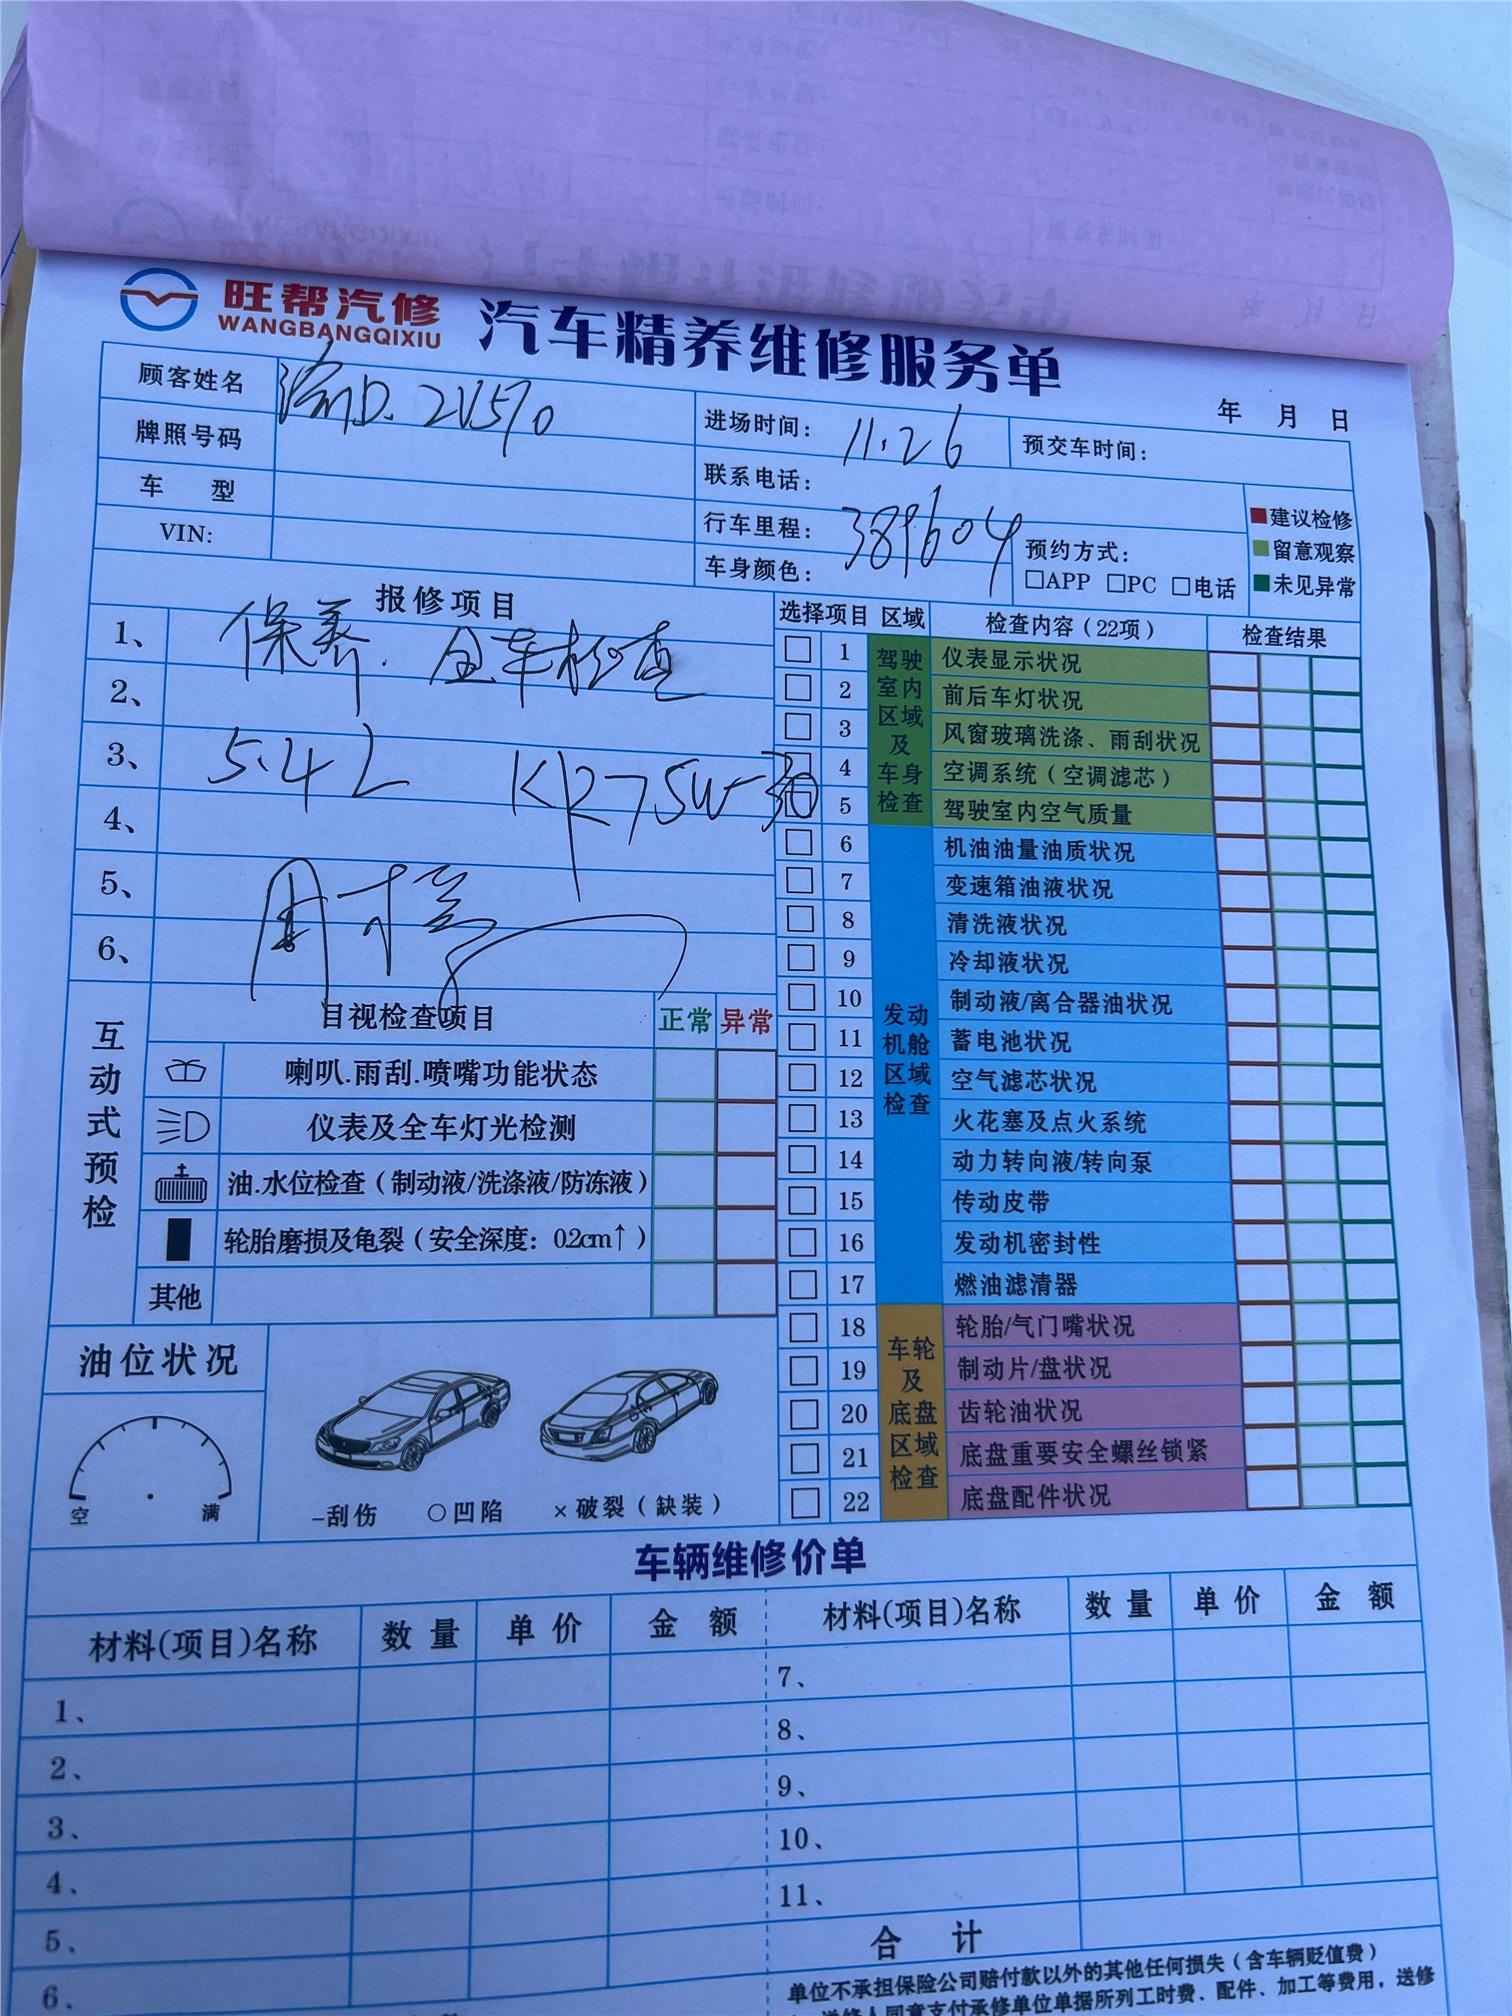 旺帮汽修
WANGBANGQIXIU
汽车精养维修服务单
年 月 日
顾客姓名 渝D.2V570
牌照号码
车 型
VIN:
进场时间： 11.26 预交车时间：
联系电话：
行车里程： 389604
车身颜色：
预约方式：
□APP □PC □电话
建议检修
留意观察
未见异常
报修项目
1、 保养. 全车检查
2、
3、 5.4L KR7 5W-30
4、
5、
6、
互动式预检
目视检查项目 正常 异常
喇叭.雨刮.喷嘴功能状态
仪表及全车灯光检测
油.水位检查（制动液/洗涤液/防冻液）
轮胎磨损及龟裂（安全深度：0.2cm↑）
其他
油位状况
空 满
–刮伤 ○凹陷 ×破裂（缺装）
选择项目 区域 检查内容（22项） 检查结果
驾驶室内区域及车身检查
1 仪表显示状况
2 前后车灯状况
3 风窗玻璃洗涤、雨刮状况
4 空调系统（空调滤芯）
5 驾驶室内空气质量
发动机舱区域检查
6 机油油量油质状况
7 变速箱油液状况
8 清洗液状况
9 冷却液状况
10 制动液/离合器油状况
11 蓄电池状况
12 空气滤芯状况
13 火花塞及点火系统
14 动力转向液/转向泵
15 传动皮带
16 发动机密封性
17 燃油滤清器
车轮及底盘区域检查
18 轮胎/气门嘴状况
19 制动片/盘状况
20 齿轮油状况
21 底盘重要安全螺丝锁紧
22 底盘配件状况
车辆维修价单
材料(项目)名称 数量 单价 金 额 材料(项目)名称 数量 单价 金 额
1、 7、
2、 8、
3、 9、
4、 10、
5、 11、
6、 合 计
单位不承担保险公司赔付款以外的其他任何损失（含车辆贬值费）
送修人同意支付承修单位单据所列工时费、配件、加工等费用，送修